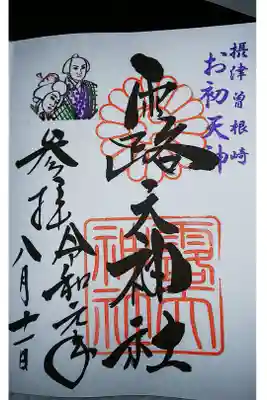 摂津曽根崎
お初天神
露天神社
参拝
令和元年
八月十一日
露天
神社